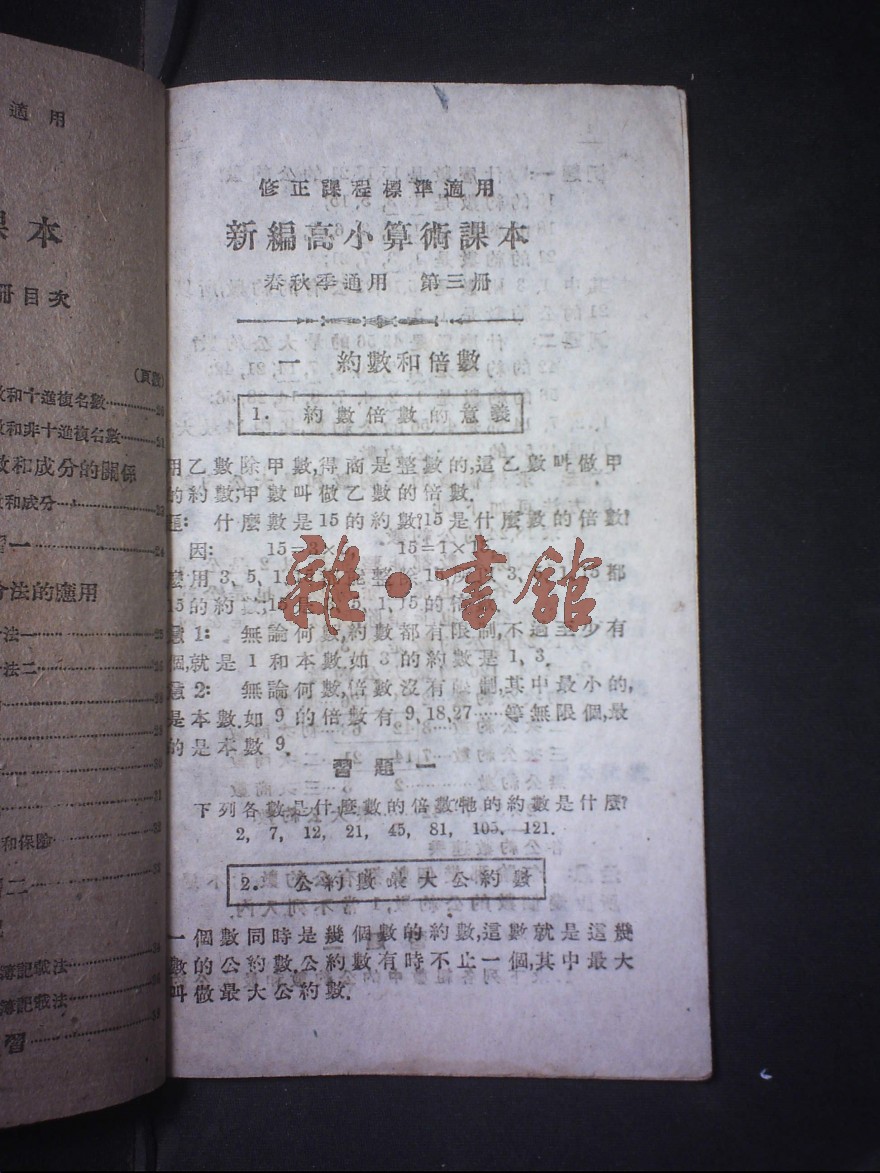 適用
課本
冊目次
(頁數)
數和十進複名數············20
數和非十進複名數·········21
數和成分的關係
和成分············23
習一············24
分法的應用
法一············25
法二············26
············28
············30
············31
和保險············32
習二············
簿記載法············
簿記載法············
習············
修正課程標準適用
新編高小算術課本
春秋季通用 第三冊
一 約數和倍數
1. 約數倍數的意義
用乙數除甲數,得商是整數的,這乙數叫做甲
的約數;甲數叫做乙數的倍數.
題: 什麼數是15的約數?15是什麼數的倍數?
因: 15=3× 15=1×15
麼用3、5、1 都
15的約 15是 5,1,15的倍
意1: 無論何數,約數都有限制,不過至少有
個,就是1和本數.如3的約數是1,3.
意2: 無論何數,倍數沒有限制,其中最小的,
是本數.如9的倍數有9,18,27……等無限個,最
的是本數9.
習題一
下列各數是什麼數的倍數?牠的約數是什麼?
2, 7, 12, 21, 45, 81, 105, 121.
2. 公約數最大公約數
一個數同時是幾個數的約數,這數就是這幾
數的公約數.公約數有時不止一個,其中最大
叫做最大公約數.
雜·書館